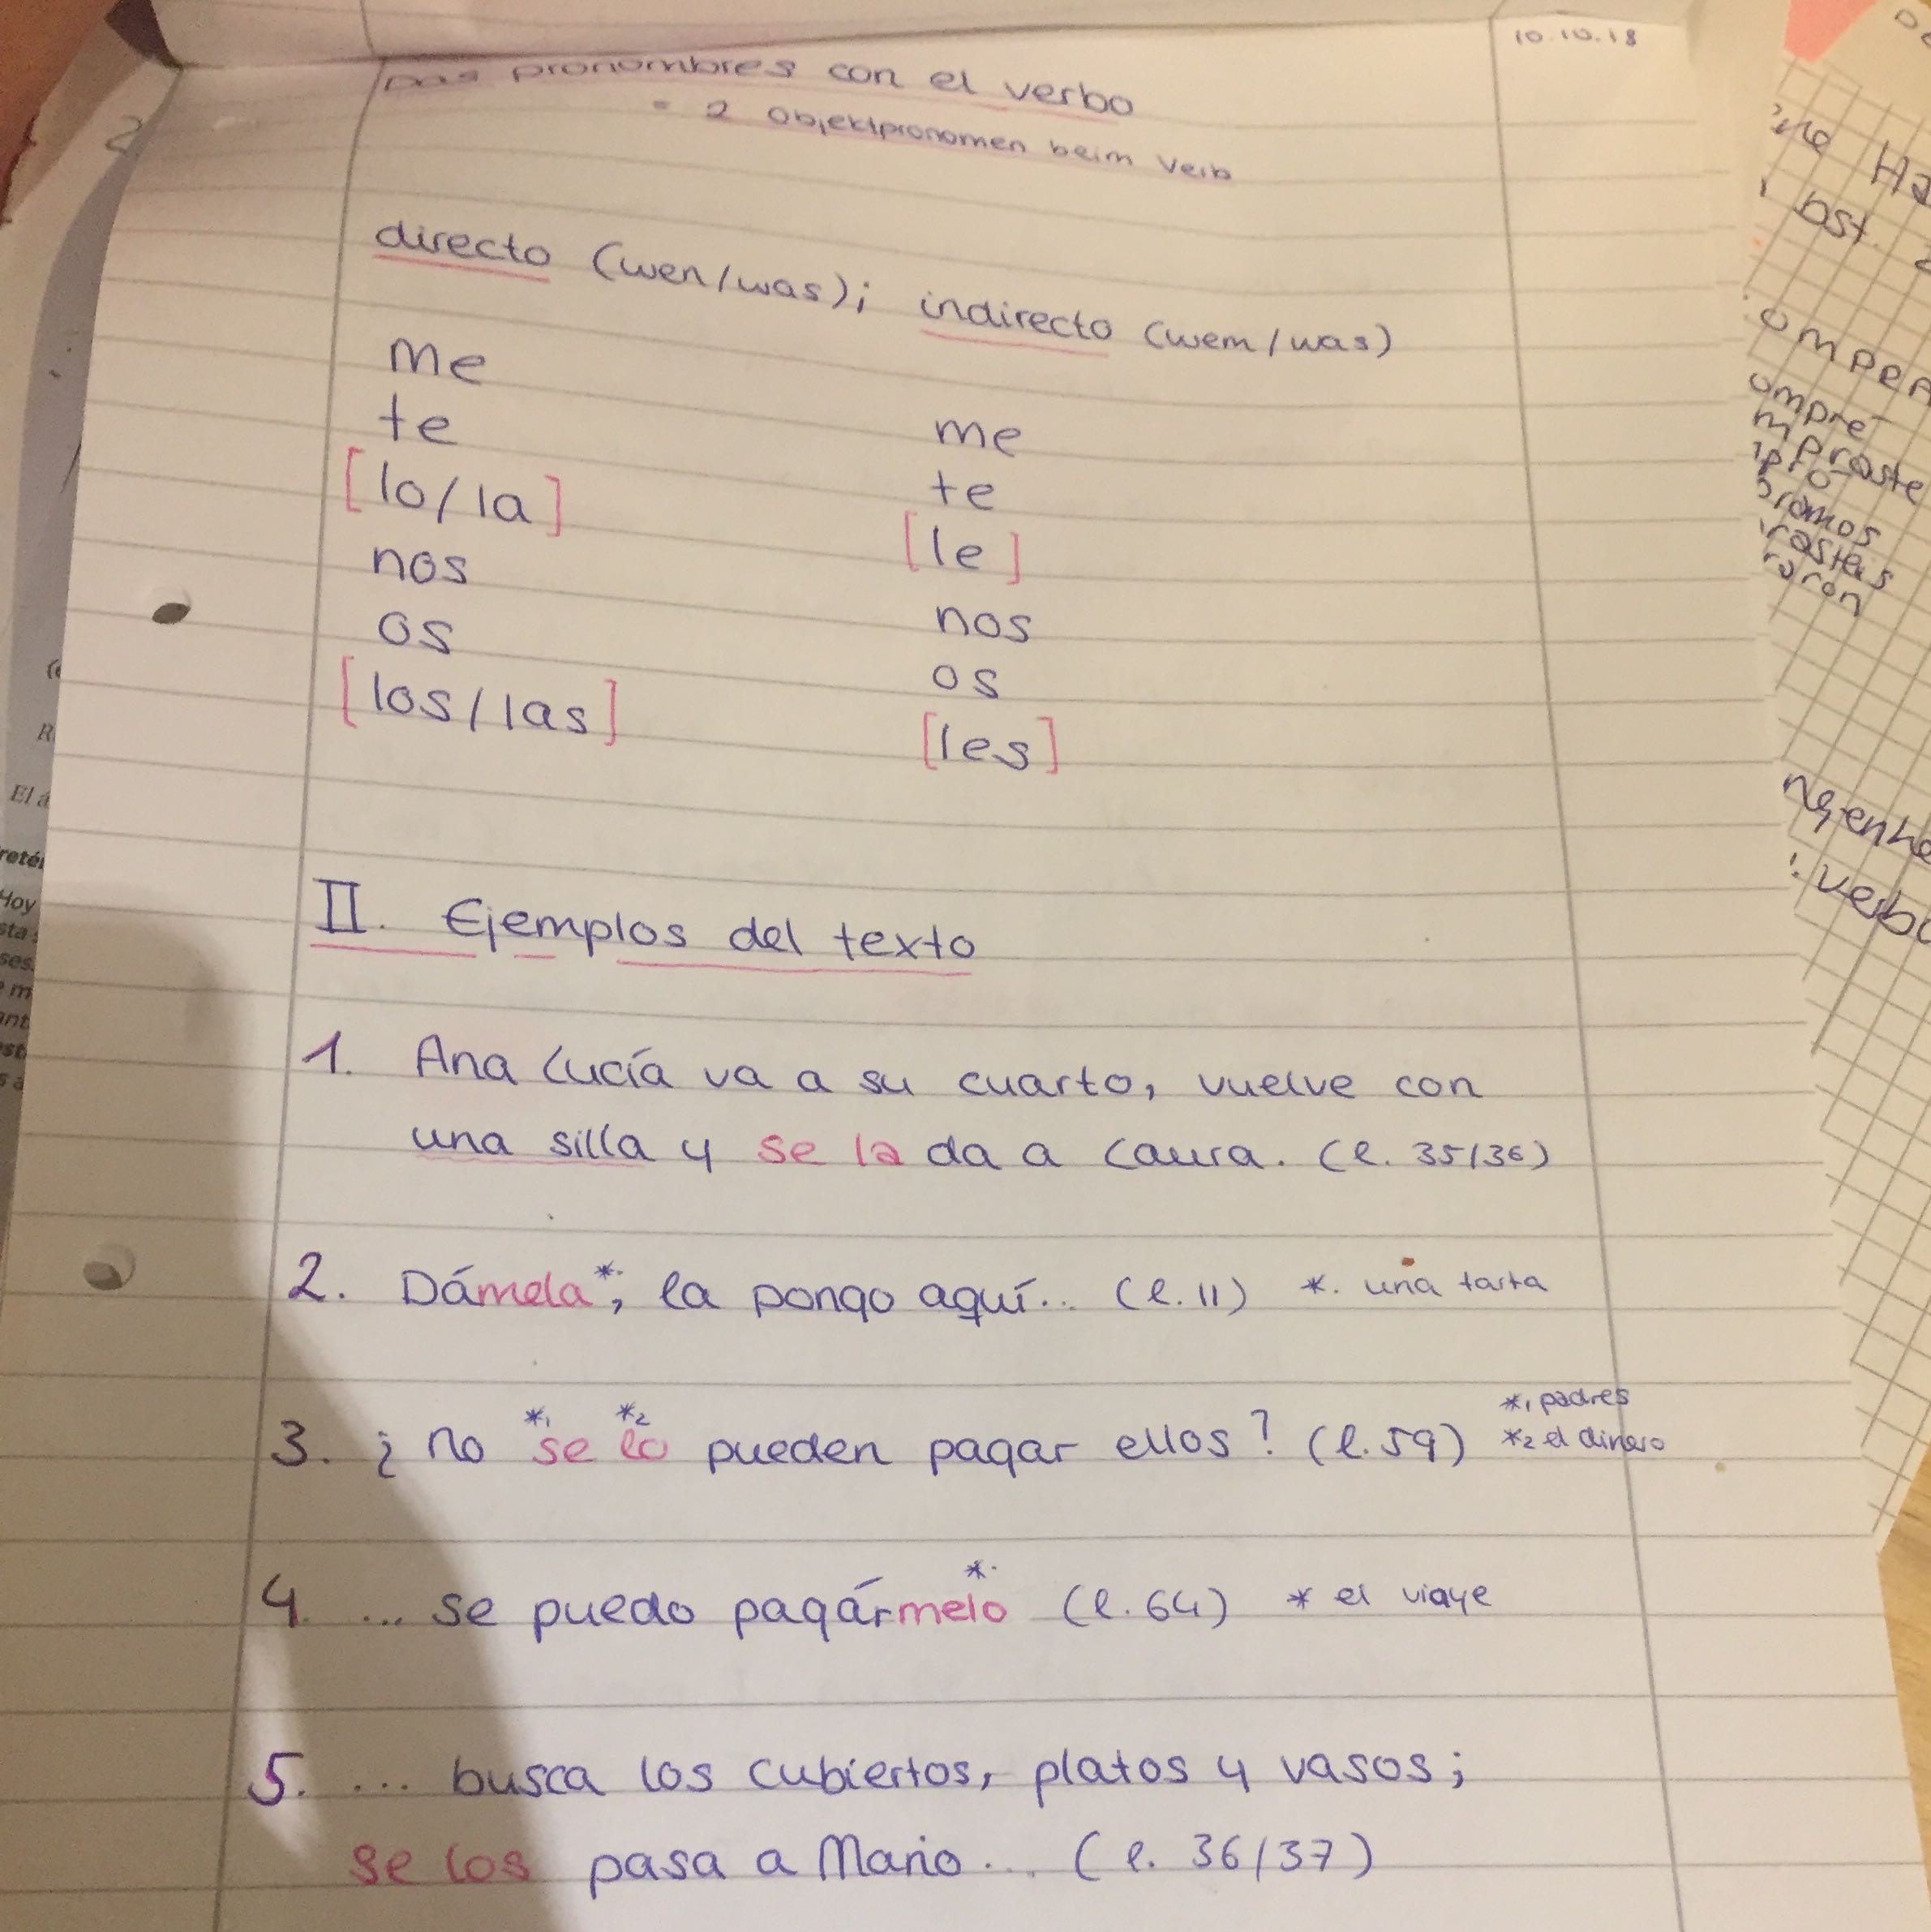 10.10.18
pronombres con el verbo
= 2 Objektpronomen beim Verb
directo (wen/was); indirecto (wem/was)
me
te
[lo/la]
nos
os
[los/las]
me
te
[le]
nos
os
[les]
II. Ejemplos del texto
1. Ana Lucía va a su cuarto, vuelve con
una silla y se la da a Laura. (l. 35/36)
2. Dámela*; la pongo aquí... (l. 11) *. una tarta
3. ¿ no *1 se *2 lo pueden pagar ellos? (l. 59) *1 padres
*2 el dinero
4. ... se puedo pagármelo *. (l. 64) * el viaye
5. ... busca los cubiertos, platos y vasos;
se los pasa a Mario... (l. 36/37)
ompré
mpraste
verbo